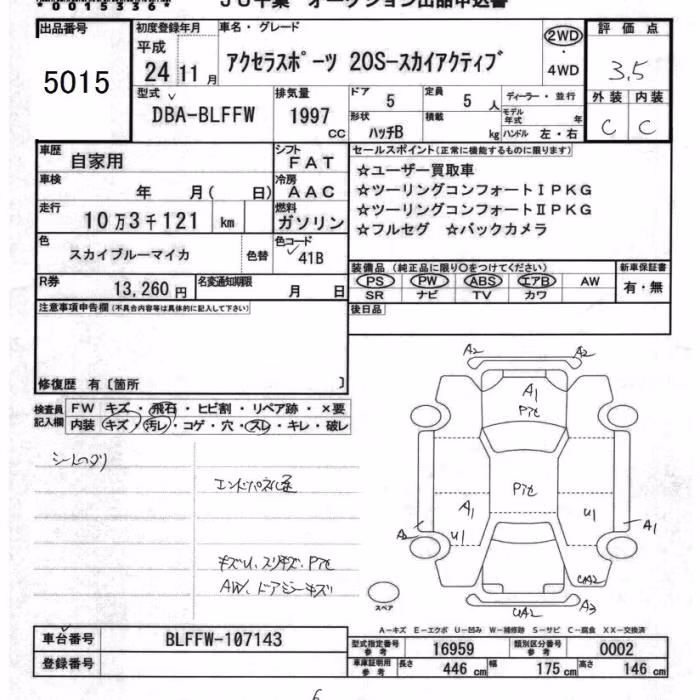 00153364
JU千葉 オークション出品申込書
出品番号 初度登録年月 車名・グレード 評価点
5015 平成 24 11 月 アクセラスポーツ 20S-スカイアクティブ 2WD ・ 4WD 3.5
型式 排気量 ドア 定員 ディーラー・並行 外装 内装
DBA-BLFFW 1997 CC 5 5 人 モデル年式 年 C C
形状 積載
ハッチB kg ハンドル 左・右
車歴 自家用 シフト FAT セールスポイント(正常に機能するものに限ります)
車検 年 月( 日) 冷房 AAC ☆ユーザー買取車
走行 10万3千121 km 燃料 ガソリン ☆ツーリングコンフォートⅠPKG
☆ツーリングコンフォートⅡPKG
☆フルセグ ☆バックカメラ
色 スカイブルーマイカ 色替 色コード 41B
装備品(純正品に限り〇をつけてください) 新車保証書
R券 13,260 円 名変通知期限 月 日 PS PW ABS エアB AW 有・無
SR ナビ TV カワ
注意事項申告欄(不具合内容等は具体的に記入して下さい) 後日品
修復歴 有〔箇所 〕
検査員記入欄 FW キズ・飛石・ヒビ割・リペア跡・×要
内装 キズ・汚レ・コゲ・穴・スレ・キレ・破レ
A2 A2
A1
Pat
Pat
A1 U1
A2 U1 A1
UA2
UA2 A3
スペア
キズU、スリキズ、Pat
AW、ドアミラーキズ
A-キズ E-エクボ U-凹み W-補修跡 S-サビ C-腐食 XX-交換済
車台番号 BLFFW-107143 型式指定番号 参考 16959 類別区分番号 参考 0002
登録番号 車庫証明用 参考 長さ 446 cm 幅 175 cm 高さ 146 cm